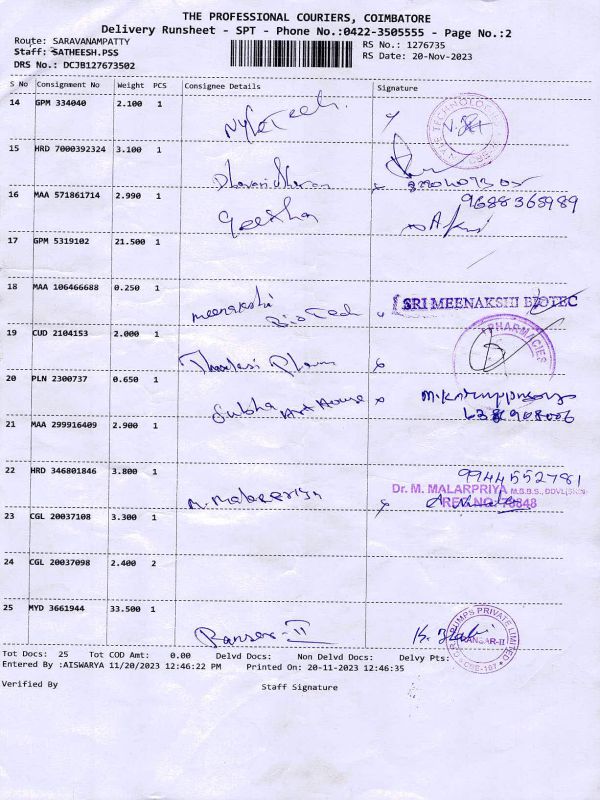 THE PROFESSIONAL COURIERS, COIMBATORE
Delivery Runsheet - SPT - Phone No.:0422-3505555 - Page No.:2
Route: SARAVANAMPATTY
Staff: SATHEESH.PSS
DRS No.: DCJB127673502
RS No.: 1276735
RS Date: 20-Nov-2023
S No Consignment No Weight PCS Consignee Details Signature
14 GPM 334040 2.100 1
15 HRD 7000392324 3.100 1
16 MAA 571861714 2.990 1 Geetha
9688365989
17 GPM 5319102 21.500 1
18 MAA 106466688 0.250 1 meenakshi Bio Tech
SRI MEENAKSHI BIOTEC
19 CUD 2104153 2.000 1
PHARMACIES
20 PLN 2300737 0.650 1 Subha Art House
21 MAA 299916409 2.900 1
22 HRD 346801846 3.800 1
9944552781
Dr. M. MALARPRIYA M.B.B.S., DDVL(SKIN)
23 CGL 20037108 3.300 1
24 CGL 20037098 2.400 2
25 MYD 3661944 33.500 1 Ransar-II
PUMPS PRIVATE LIMITED
RANSAR-II
Tot Docs: 25 Tot COD Amt: 0.00 Delvd Docs: Non Delvd Docs: Delvy Pts:
Entered By :AISWARYA 11/20/2023 12:46:22 PM Printed On: 20-11-2023 12:46:35
Verified By Staff Signature